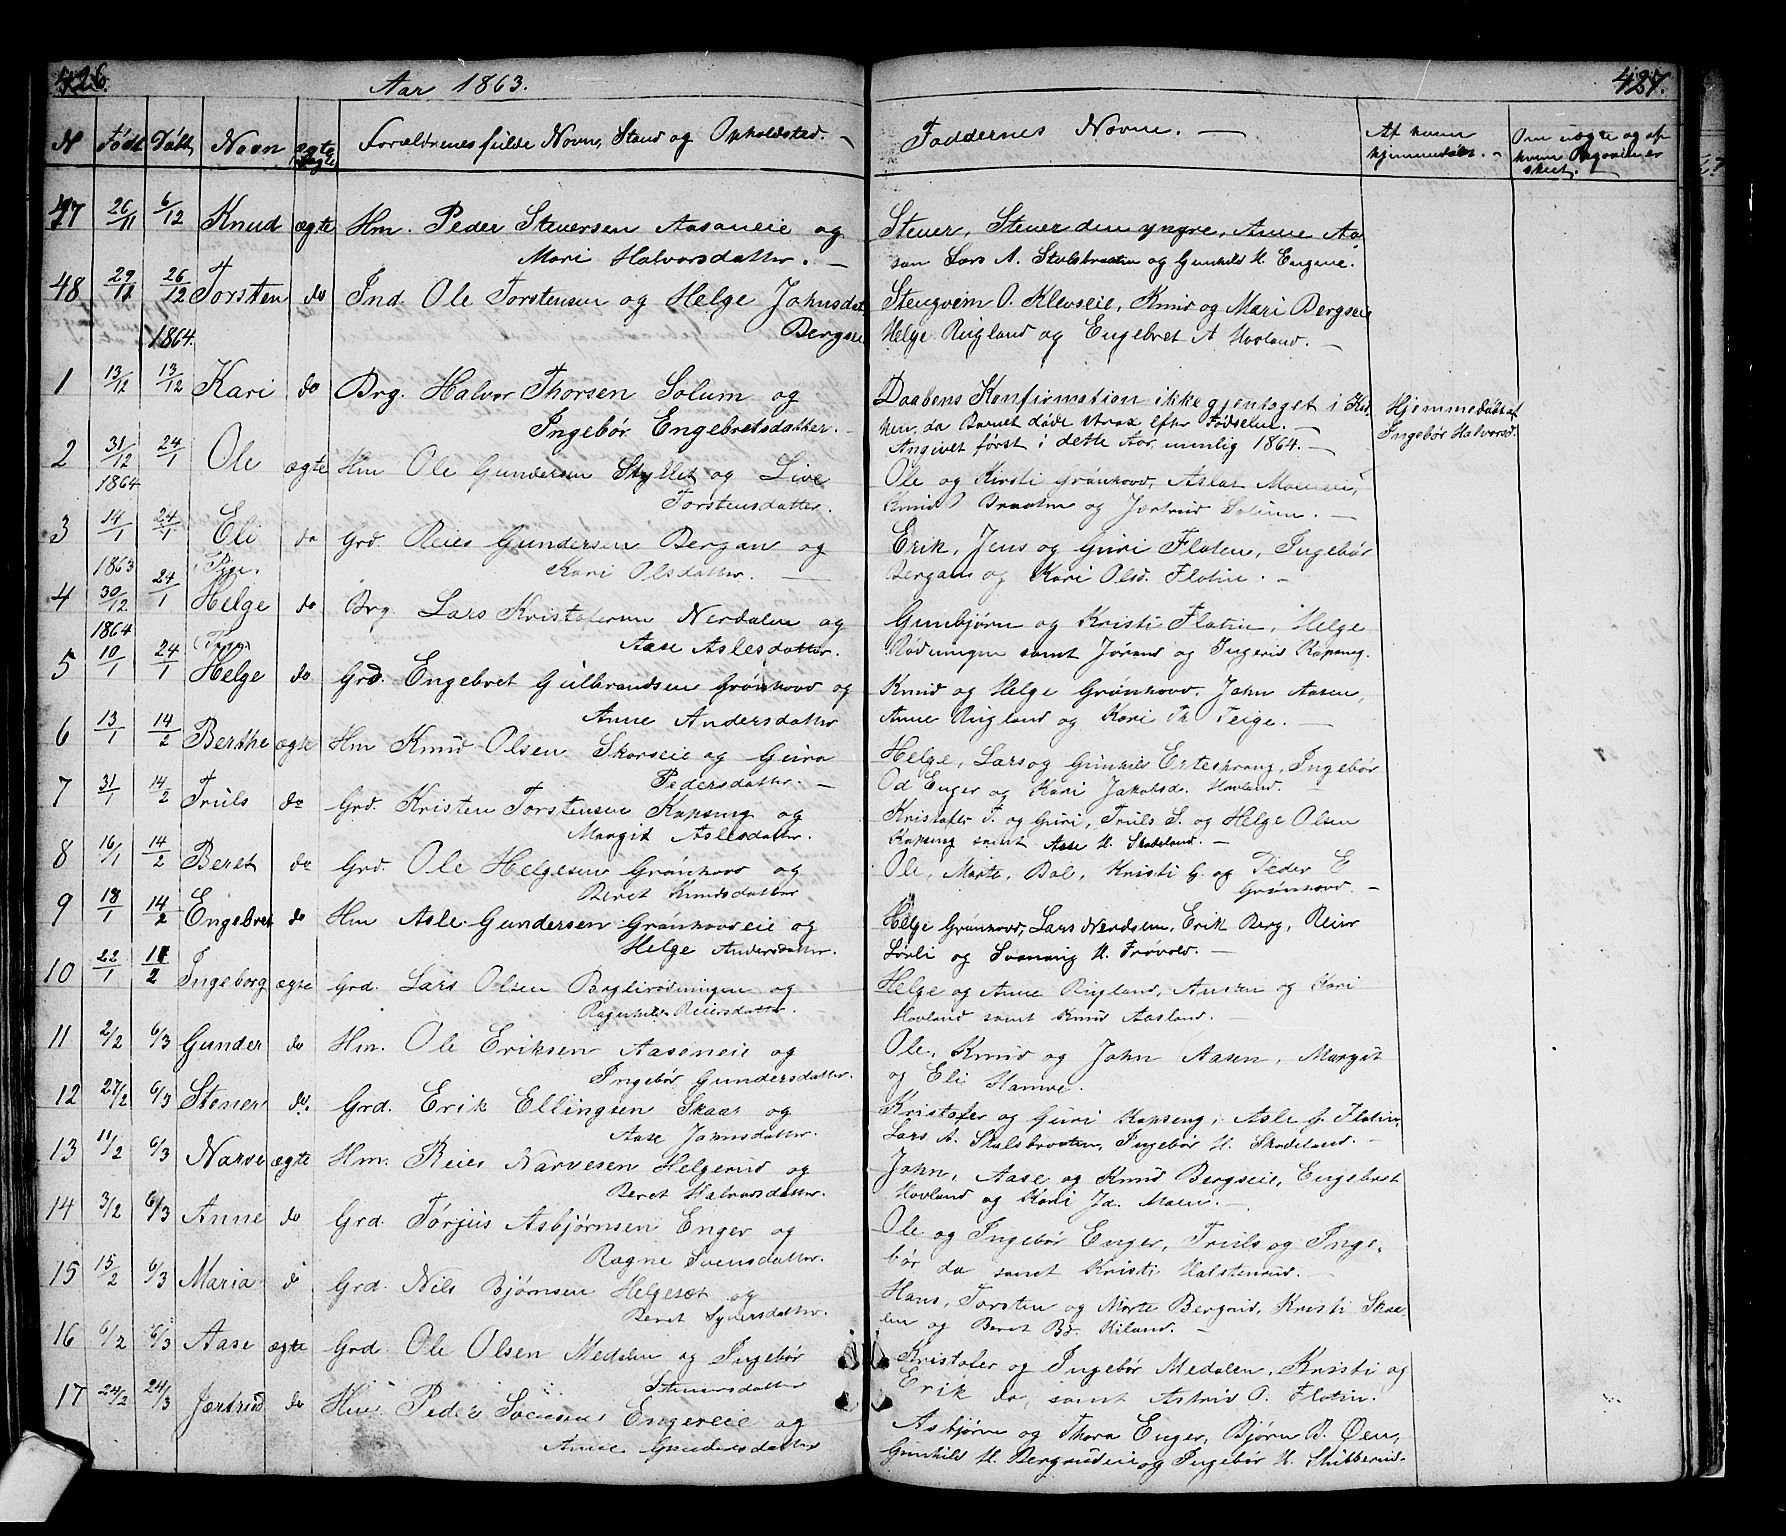 426.
Aar 1863.
427.
N Født Døbt Navn ægte uægte Forældrenes fulde Navn, Stand og Opholdsted. Faddernes Navne. Af hvem hjemmedøbt. Om uægte og af hvem Opgivelser skeet.
47 26/11 6/12 Knud ægte Hm. Peder Steuersen Aasaneie og
Mari Halvorsdatter.
Steuer, Steuer den yngre, Anne Aa
sen Lars A. Stulsbraaten og Gunhild H. Engene.
48 29/11 26/12 Torsten do Ind. Ole Torstensen og Helge Johnsdat
Bergseie
Stengrim O. Klevseie, Knud og Mari Bergseie
Helge Rugland og Engebret A Hovland.
1864.
1 13/12 13/12 Kari do Brg. Halvor Thorsen Solum og
Ingebör Engebretsdatter.
Daabens Konfirmation ikke gjentaget i Kir
ken, da Barnet döde strax efter Födselen.
Angivet först i dette Aar, nemlig 1864.
Hjemmedöbt af
Ingebör Halvorsd.
2 31/12 24/1 Ole ægte Hm Ole Gundersen Skyllet og Live
Torstensdatter.
Ole og Kirsti Grönhovd, Aslat
Knud Braaten og Jørtrud Solum.
1864
3 14/1 24/1 Eli do Grd. Reier Gundersen Bergan og
Kari Olsdatter.
Erik, Jens og Guri Flaten, Ingebör
Bergan og Kari Olsd. Flatin.
1863
4 30/12 24/1 Helge do Brg. Lars Kristofersen Nerdalen og
Aase Aslesdatter.
Gunbjörn og Kristi Flatin, Helge
Rödningen samt Jørand og Ingerid Kapseng.
1864
5 10/1 24/1 Helge do Grd. Engebret Gulbrandsen Grönhovd og
Anne Andersdatter
Knud og Helge Grönhovd, John Aasen,
Anne Rugland og Kari Th. Teige.
6 13/1 14/2 Berthe ægte Hm Knud Olsen Skarseie og Guro
Pedersdatter.
Helge, Lars og Gunhild Ertesprang, Ingebör
Od Enger og Kari Jakobsd. Hovland.
7 31/1 14/2 Truls do Grd. Kristen Torstensen Kapseng og
Margit Aslesdatter.
Kristofer T. og Guri, Truls S. og Helge Olsen
Kapseng samt Aase H. Skadeland.
8 16/1 14/2 Beret do Grd. Ole Helgesen Grönhovd og
Beret Knudsdatter
Ole, Marte, Kristi G. og Peder E
Grönhovd.
9 18/1 14/2 Engebret do Hm Asle Gundersen Grönhovdeie og
Helge Andersdatter.
Helge Grönhovd, Lars Nerdalen, Erik Berg, Reier
Lövli og Svanaug H. Frövold.
10 22/1 14/2 Ingeborg ægte Grd. Lars Olsen Baglirödningen og
Ragnhild Reiersdatter.
Helge og Anne Rugland, Anders og Kari
Hovland samt Knud Aasland.
11 2/2 6/3 Gunder do Hm. Ole Eriksen Aaseneie og
Ingebör Gundersdatter.
Ole, Knud og John Aasen, Margit
og Eli Hamre.
12 27/2 6/3 Stener do. Grd. Erik Ellingsen Skaar og
Aase Johnsdatter.
Kristofer og Guri Kapseng, Asle G. Flatin,
Lars A. Stulsbraaten, Ingebör H. Skadeland.
13 11/2 6/3 Narve ægte Hm. Reier Narvesen Helgerud og
Beret Halvorsdatter.
John, Aase og Knud Bergseie, Engebret
Hovland og Kari Ja. Moen.
14 3/2 6/3 Anne do Grd. Törjus Asbjørnsen Enger og
Ragne Svensdatter.
Ole og Ingebör Enger, Truls og Inge-
bör do samt Kristi Halstenrud.
15 15/2 6/3 Maria do Grd. Nils Bjørnsen Helgeset og
Beret Syversdatter.
Hans, Torsten og Marte Bergrud, Kristi Skaa
len og Beret Bd. Kiland.
16 6/2 6/3 Aase ægte Grd. Ole Olsen Medalen og Ingebör
Steuersdatter
Kristofer og Ingebör Medalen, Kristi og
Erik do, samt Astrid O. Flatin.
17 24/2 24/3 Jørtrud do Hm Peder Svensen Engereie og
Anne Gundersdatter
Asbjörn og Thora Enger, Björn B. Øen,
Gunhild H. Bergrudeie og Ingebör H. Skibberud.